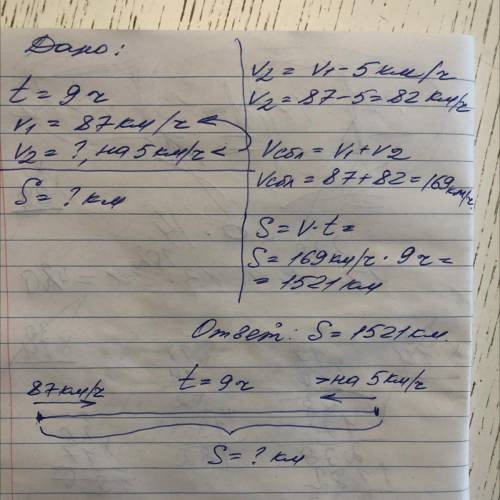 Дано:
t = 9 ч
v1 = 87 км/ч
v2 = ?, на 5 км/ч <
S = ? км
v2 = v1 - 5 км/ч
v2 = 87 - 5 = 82 км/ч
vсбл = v1 + v2
vсбл = 87 + 82 = 169 км/ч.
S = v · t =
S = 169 км/ч · 9 ч =
= 1521 км
Ответ: S = 1521 км.
87 км/ч t = 9 ч > на 5 км/ч
S = ? км